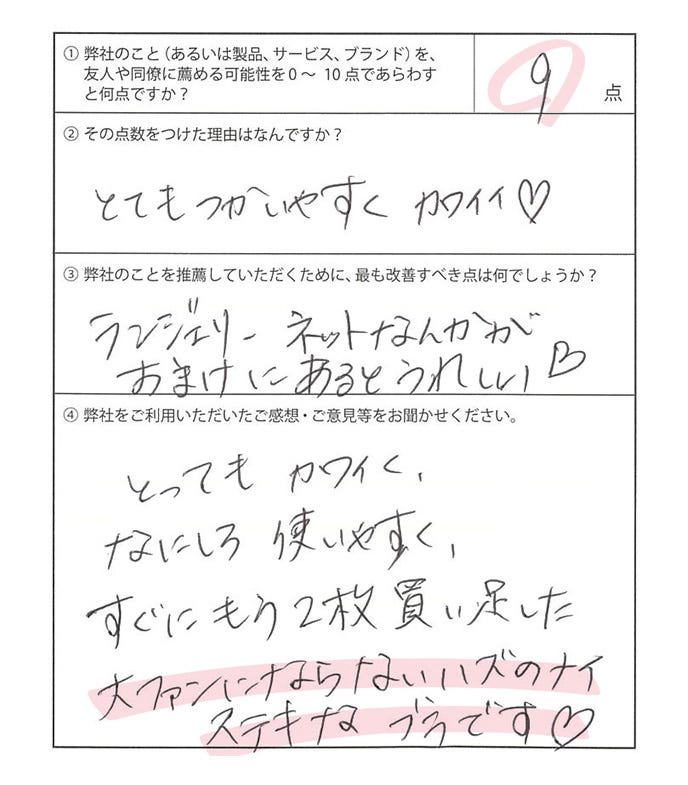 ① 弊社のこと（あるいは製品、サービス、ブランド）を、
友人や同僚に薦める可能性を0～ 10点であらわす
と何点ですか？
9 点
② その点数をつけた理由はなんですか？
とてもつかいやすく カワイイ♡
③ 弊社のことを推薦していただくために、最も改善すべき点は何でしょうか？
ランジェリーネットなんかが
おまけにあるとうれしい♡
④ 弊社をご利用いただいたご感想・ご意見等をお聞かせください。
とっても カワイく、
なにしろ 使いやすく、
すぐにもう2枚買い足した
大ファンにならないハズのナイ
ステキな ブラです♡